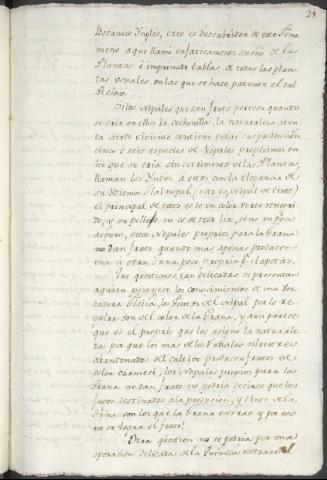 24
Botanico Ynglés, este es descubridor de este fenó-
meno aque llamó enfaticamente sueño de las
Plantas é imprimió tablas de todas las plan-
tas usuales. en las que se hace patente el tal
Relox.
Si los Nopales que dan fruto perecen quando
se cria en ellos la cochinilla, la naturaleza
contiene entre sus producciones
cinco ó seis especies de Nopales propisimos en
los que se cria sin detrimento de las Plantas,
llaman los Yndios á estos con la elegancia de
su Ydioma Nalnopal (esto es, Nopal de tinte)
el principal de estos es de un color verde
y su pellejo no es de todo liso, sino un poco
aspero, estos Nopales propios para la grana
no dan fruto quando mas apenas producen
una ú otra tuna poco propria
Que questiones tan delicadas se presentan
aqui en que exercer los conocimientos de una
Fisica, los frutos del Nopal por lo re-
gular son del color de la Grana, y aun parece
que es el proprio que les asignó la naturale-
za por que los mas de los silvestres
abandonados del cultivo producen frutos de
color carmesi, los Nopales propios para la
Grana no dan fruto no podria decirse que los
jugos destinados a la producion, y tinte de la
son los que la grana extrae y por eso
no se logra el fruto?
Otra question no se podria por una
operacion delicada de la Quimica extraer el